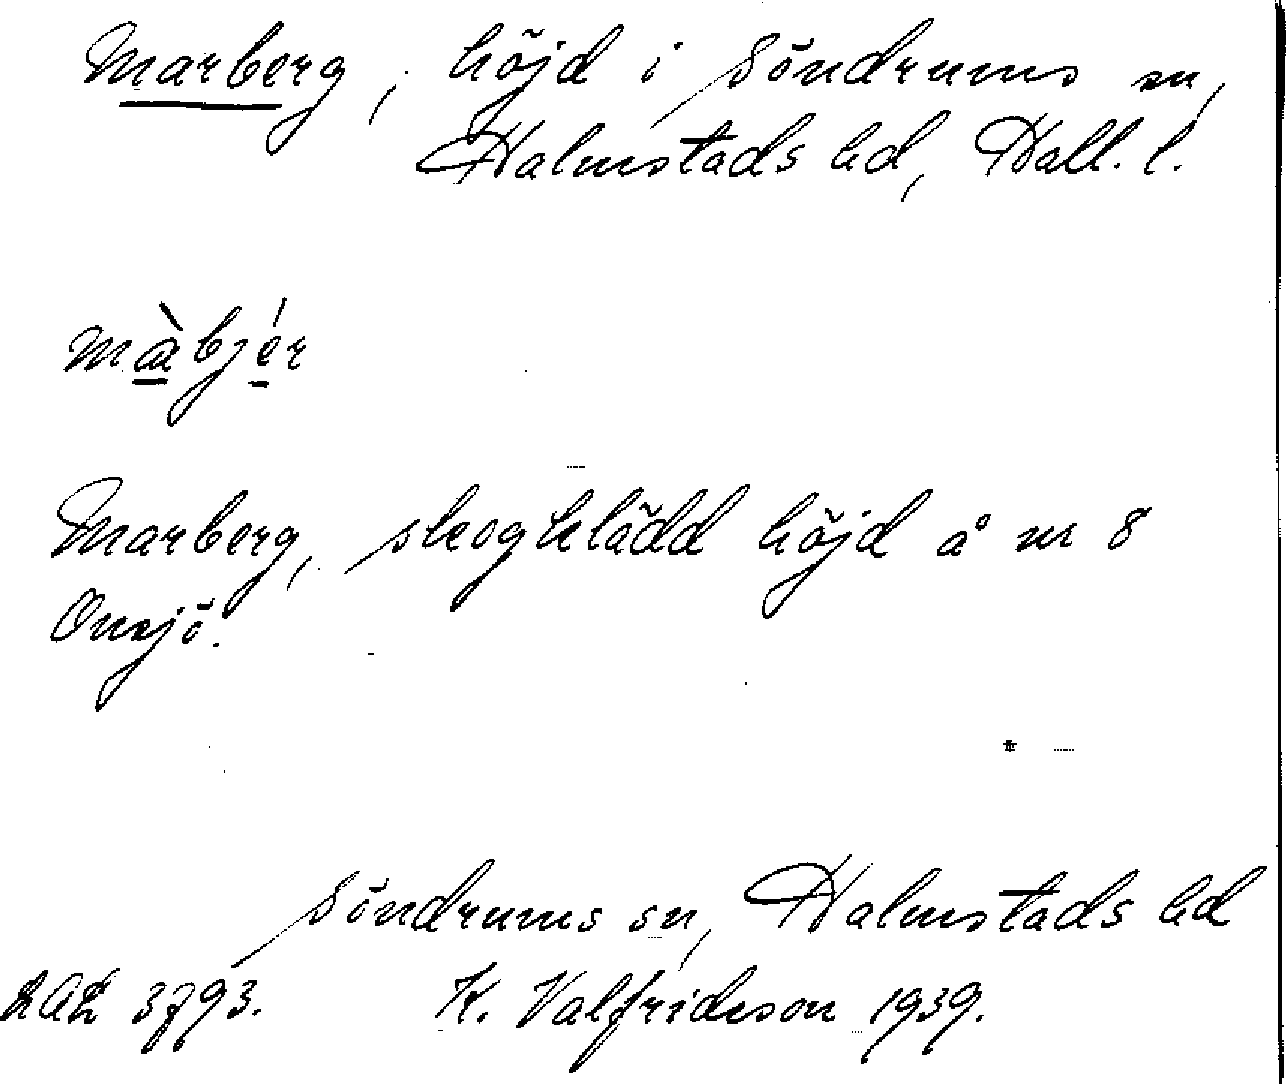 Marberg, höjd i Söndrums sn,
Halmstads hd, Hall. l.
màbjér
Marberg, skogklädd höjd å nr 8
Onsjö.
Söndrums sn, Halmstads hd
3793. K. Valfridsson 1939.